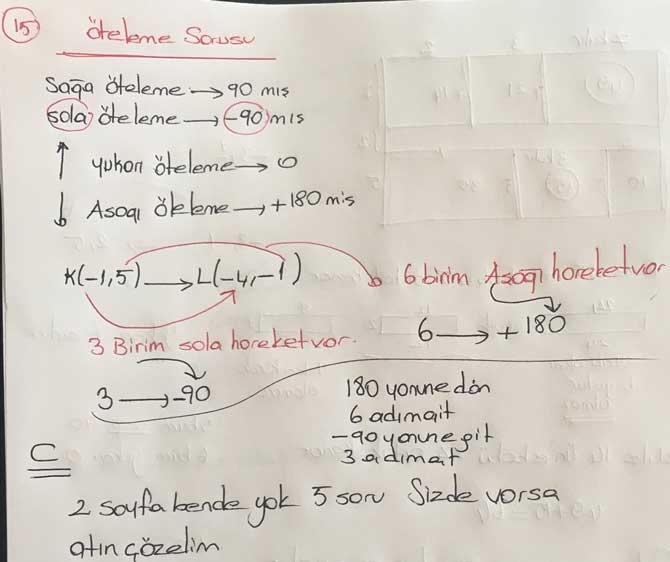 15 öteleme Sorusu
Sağa öteleme → 90 mış
sola öteleme → -90 mıs
↑ yukarı öteleme → 0
↓ Asagı öteleme → +180 mis
K(-1,5) → L(-4,-1) 6 birim Asagı hareketvar
6 → +180
3 Birim sola hareketvar.
3 → -90
180 yonune dön
6 adımgit
-90 yonune git
3 adımat
C
2 sayfa bende yok 5 soru Sizde varsa
atın çözelim